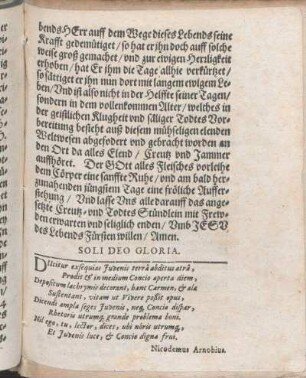 bends HErr auff dem Wege dieses Lebends seine
Krafft gedemütiget / so hat er ihn doch auff solche
weise groß gemachet / und zur ewigen Herrligkeit
erhoben / hat Er ihm die Tage allhie verkürtzet /
so sättiget er ihn nun dort mit langem ewigem Le-
ben / Und ist also nicht in der Helffte seiner Tagen /
sondern in dem vollenkommen Alter / welches in
der geistlichen Klugheit und säliger Todtes Vor-
bereitung besteht auß diesem mühseligen elenden
Weltwesen abgefodert und gebracht worden an
den Ort da alles Elend / Creutz und Jammer
auffhöret. Der GOtt alles Fleisches vorleihe
dem Cörper eine sanffte Ruhe / und am bald her-
zunahenden jüngstem Tage eine fröliche Auffer-
stehung / Und lasse Uns alle darauff das ange-
setzte Creutz- und Todtes Stündlein mit Frew-
den erwarten und seliglich enden / Umb JESV
des Lebends Fürsten willen / Amen.
SOLI DEO GLORIA.
Dicitur exsequias Juvenis terrâ abditus atrâ,
Prodit & in medium Concio aperta diem,
Depositum lacrymis decorant, hanc Carmen, & ala
Sustentant, vitam ut Vivere possit opus,
Dicendi ampla seges Juvenis, neq; Concio dispar,
Rhetoris utrumq; grande problema boni.
Nil ego, tu, lector, dices, ubi nôris utrumq;
Et Juvenis luce, & Concio digna frui.
Nicodemus Arnobius.